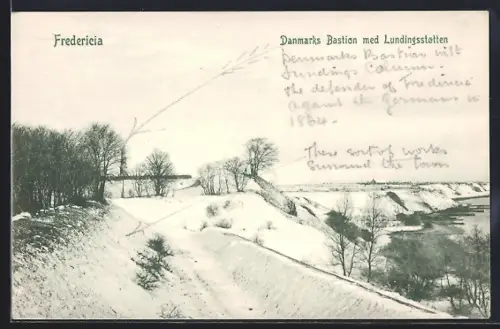 Fredericia
Danmarks Bastion med Lundingsstøtten
Denmarks Bastion with
Lundings Column.
The defender of Fredericia
against the Germans in
1864.
These sort of works
surround the town